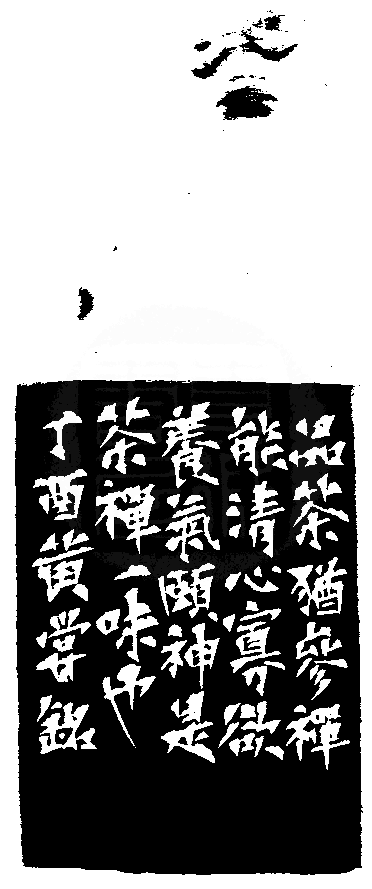 品茶猶參禪
能清心寡欲
養氣頤神是
茶禪一味也
丁酉黃嘗銘